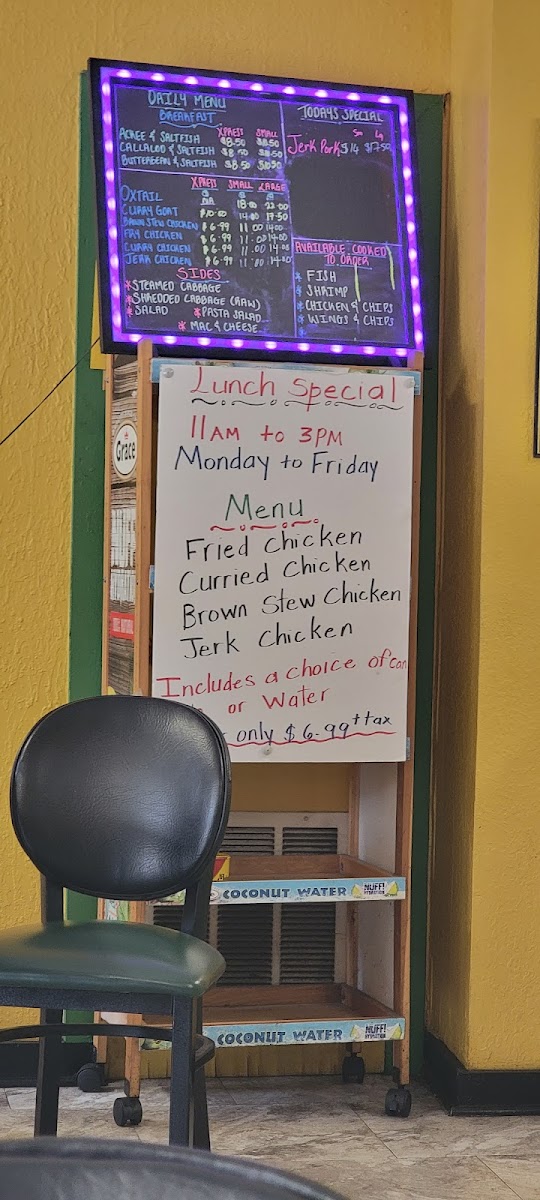 DAILY MENU
BREAKFAST
XPRESS SMALL
ACKEE & SALTFISH $8.50
CALLALOO & SALTFISH
BUTTERBEAN & SALTFISH $8.50
XPRESS SMALL LARGE
OXTAIL 22.00
CURRY GOAT 17.50
BROWN STEW CHICKEN $6.99 11.00 14.00
FRY CHICKEN $6.99 11.00 14.00
CURRY CHICKEN $6.99 11.00 14.00
JERK CHICKEN $6.99 11.00 14.00
SIDES
*STEAMED CABBAGE
*SHREDDED CABBAGE (RAW)
*SALAD *PASTA SALAD
*MAC & CHEESE
TODAYS SPECIAL
Sm Lg
Jerk Pork $14 $17.50
AVAILABLE COOKED
TO ORDER
* FISH
* SHRIMP
* CHICKEN & CHIPS
* WINGS & CHIPS
Grace
Lunch Special
11AM to 3PM
Monday to Friday
Menu
Fried Chicken
Curried Chicken
Brown Stew Chicken
Jerk Chicken
Includes a choice of can
or Water
only $6.99 + tax
COCONUT WATER NUFF!
COCONUT WATER NUFF!